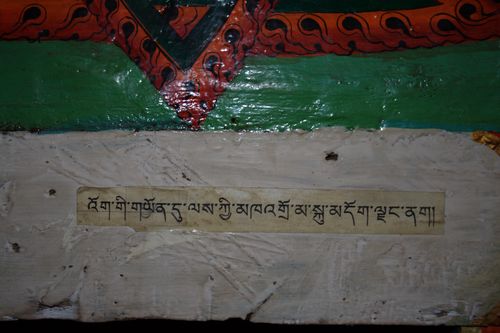 འོག་གི་གཡོན་དུ་ལས་ཀྱི་མཁའ་འགྲོ་མ་སྐུ་མདོག་ལྗང་ནག།